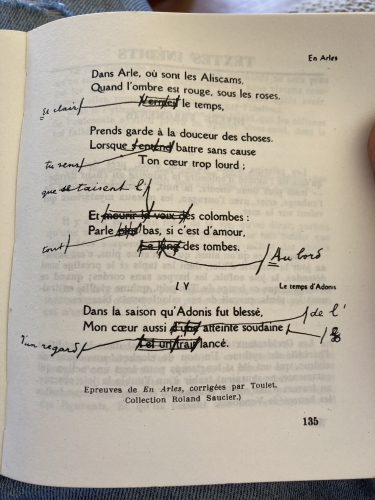 En Arles
Dans Arle, où sont les Aliscams,
Quand l'ombre est rouge, sous les roses,
Et clair le temps,
Prends garde à la douceur des choses.
Lorsque tu sens battre sans cause
Ton cœur trop lourd ;
que se taisent l
Et mourir la voix des colombes :
Parle tout bas, si c'est d'amour,
Le long des tombes.
Au bord
LV
Le temps d'Adonis
Dans la saison qu'Adonis fut blessé,
de l'
Mon cœur aussi d'une atteinte soudaine
d'un regard
lancé.
Epreuves de En Arles, corrigées par Toulet.
Collection Roland Saucier.)
135